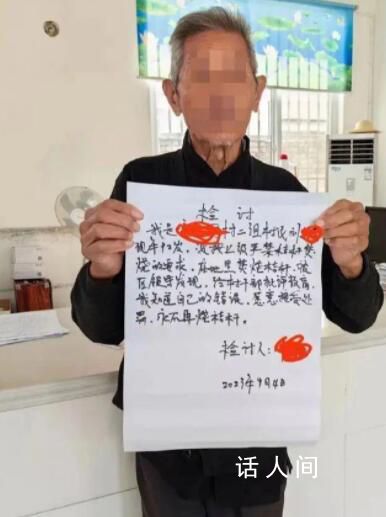 检 讨
我是 村二组村民刘
现年92岁，反上级严禁秸秆焚
烧的要求，在地里焚烧秸秆，被
区领导发现，给村干部批评教育，
我知道自己的错误，愿意接受处
罚，永不再烧秸秆。
检讨人：
2023年9月4日
话人间